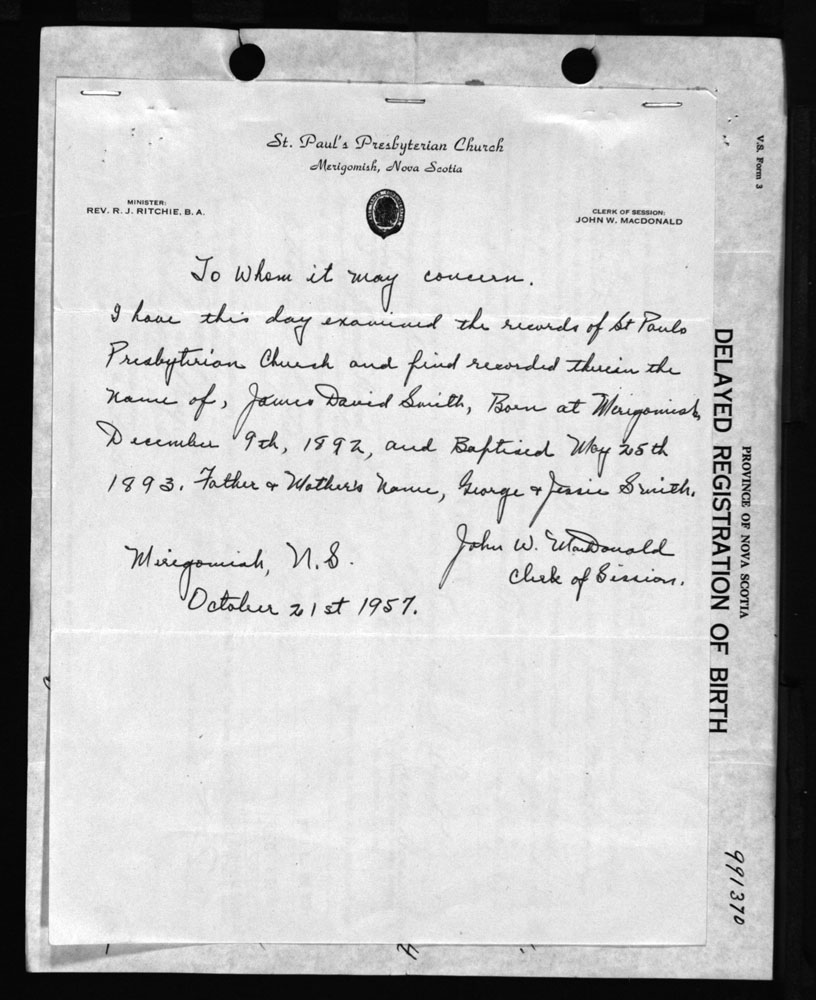 St. Paul's Presbyterian Church
Merigomish, Nova Scotia
MINISTER:
REV. R. J. RITCHIE, B. A.
CLERK OF SESSION:
JOHN W. MACDONALD
To Whom it may concern.
I have this day examined the records of St Pauls
Presbyterian Church and find recorded therein the
name of, James David Smith, Born at Merigomish,
December 9th, 1892, and Baptised May 25th
1893. Father & Mother's Name, George & Jessie Smith.
John W. MacDonald
Clerk of Session.
Merigomish, N.S.
October 21st 1957.
V.S. Form 3
PROVINCE OF NOVA SCOTIA
DELAYED REGISTRATION OF BIRTH
991370